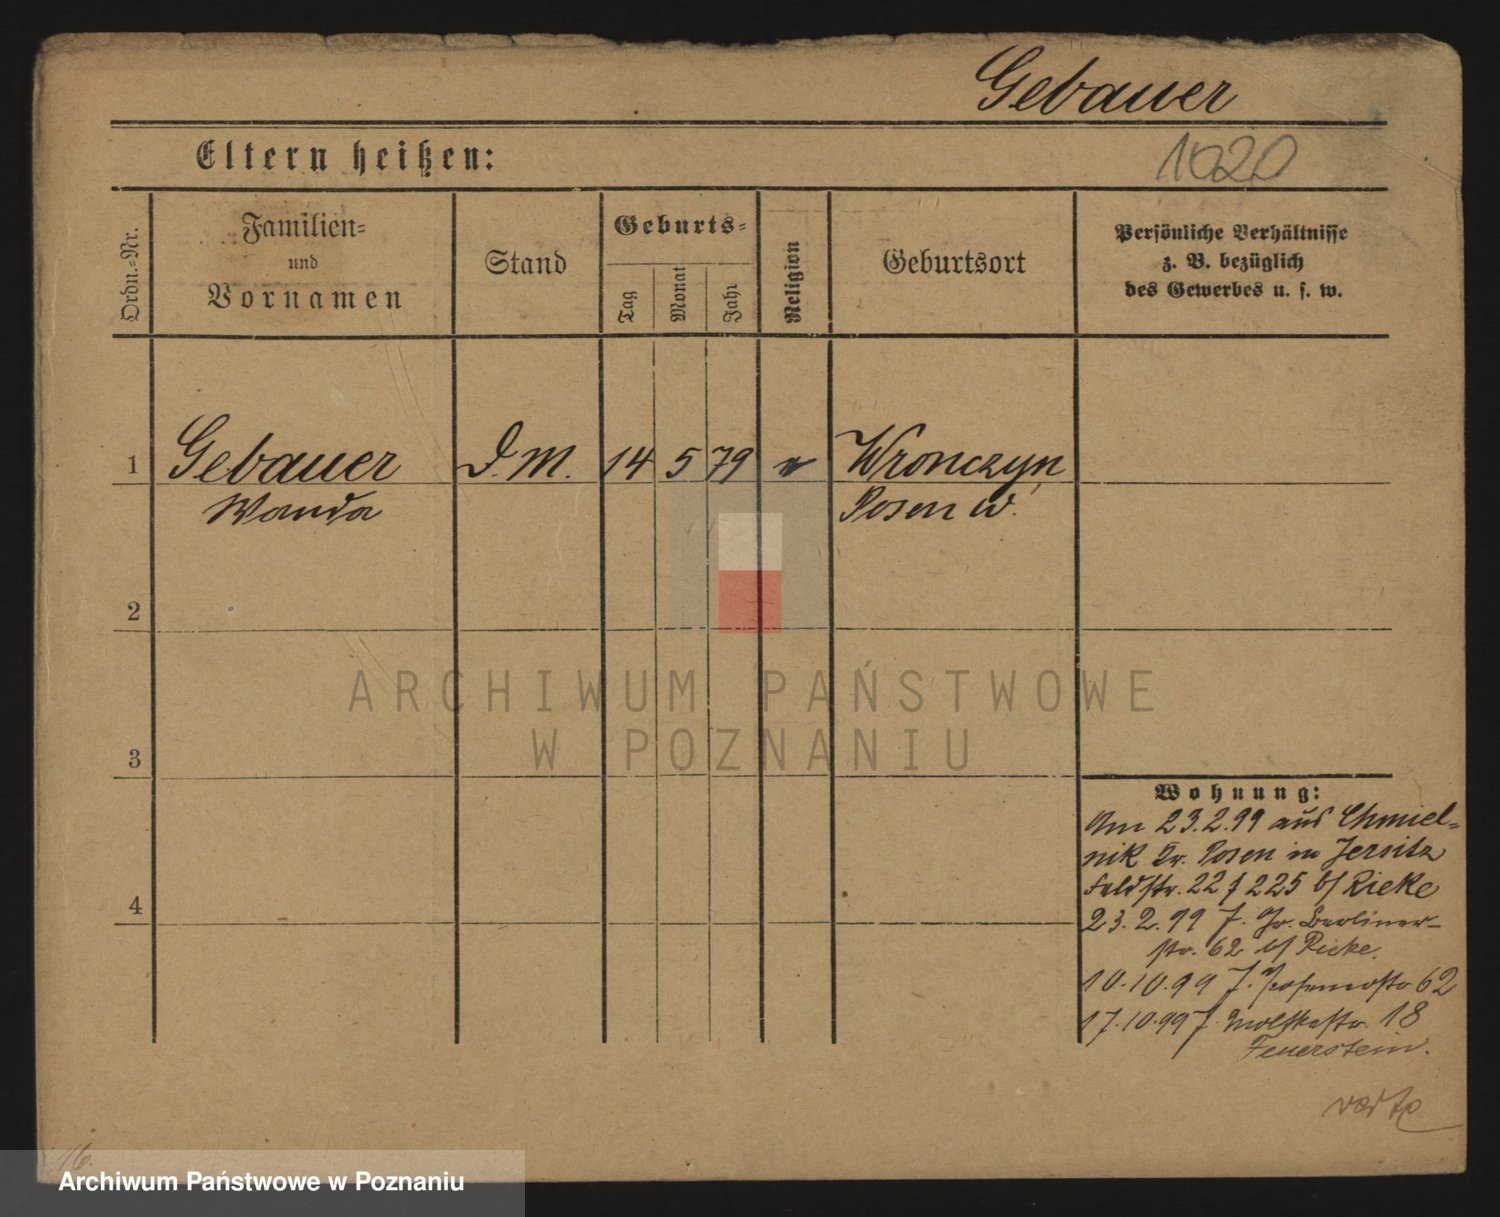 Gebauer
1020
Eltern heißen:
Ordn.-Nr.
Familien-
und
Vornamen
Stand
Geburts-
Tag
Monat
Jahr
Religion
Geburtsort
Persönliche Verhältnisse
z. B. bezüglich
des Gewerbes u. s. w.
1 Gebauer D. M. 14 5 79 Wronczyn
Wanda Posen W.
2
ARCHIWUM PAŃSTWOWE
W POZNANIU
3
4
Wohnung:
Am 23.2.99 aus Chmiel-
nik Kr. Posen in Jersitz
Feldstr. 22 f 225 b/ Rieke
23.2.99 J. Gr. Berliner-
str. 62 b/ Rieke.
10.10.99 J. 62
17.10.99 J. Moltkestr. 18
Feuerstein.
verte
16.
Archiwum Państwowe w Poznaniu